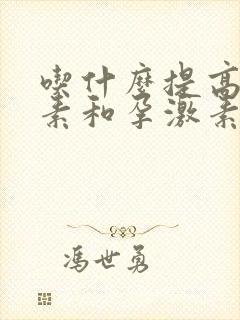 喫什麼提高
素和孕激素
馮世勇